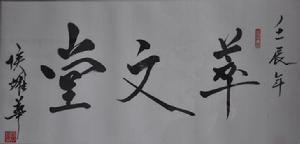 壬辰年
萃文堂
侯耀華